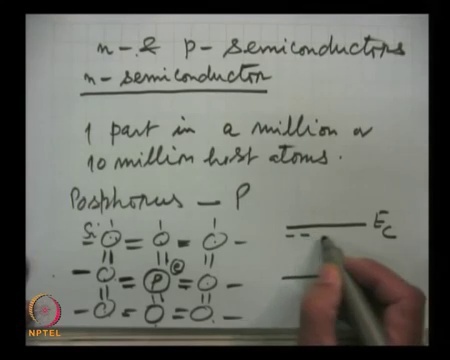 n- & p- semiconductors
n- semiconductor
1 part in a million or
10 million host atoms.
Posphorus — P
Si
P e
Ec
NPTEL